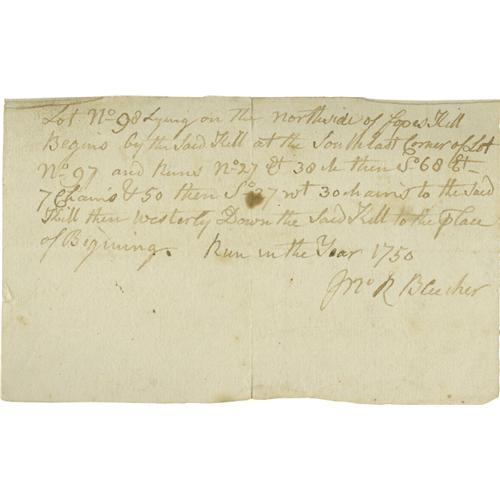 Lot No. 98 Lying on the northside of Jopes Kill
Begins by the Said Kill at the Southeast Corner of Lot
No. 97 and Runs No. 27 Et 38 ch then So. 68 Et
7 Chains & 50 then So. 27 wt 30 chains to the said
Kill then westerly Down the Said Kill to the place
of Begining. Run in the Year 1750
Jno R Bleecker